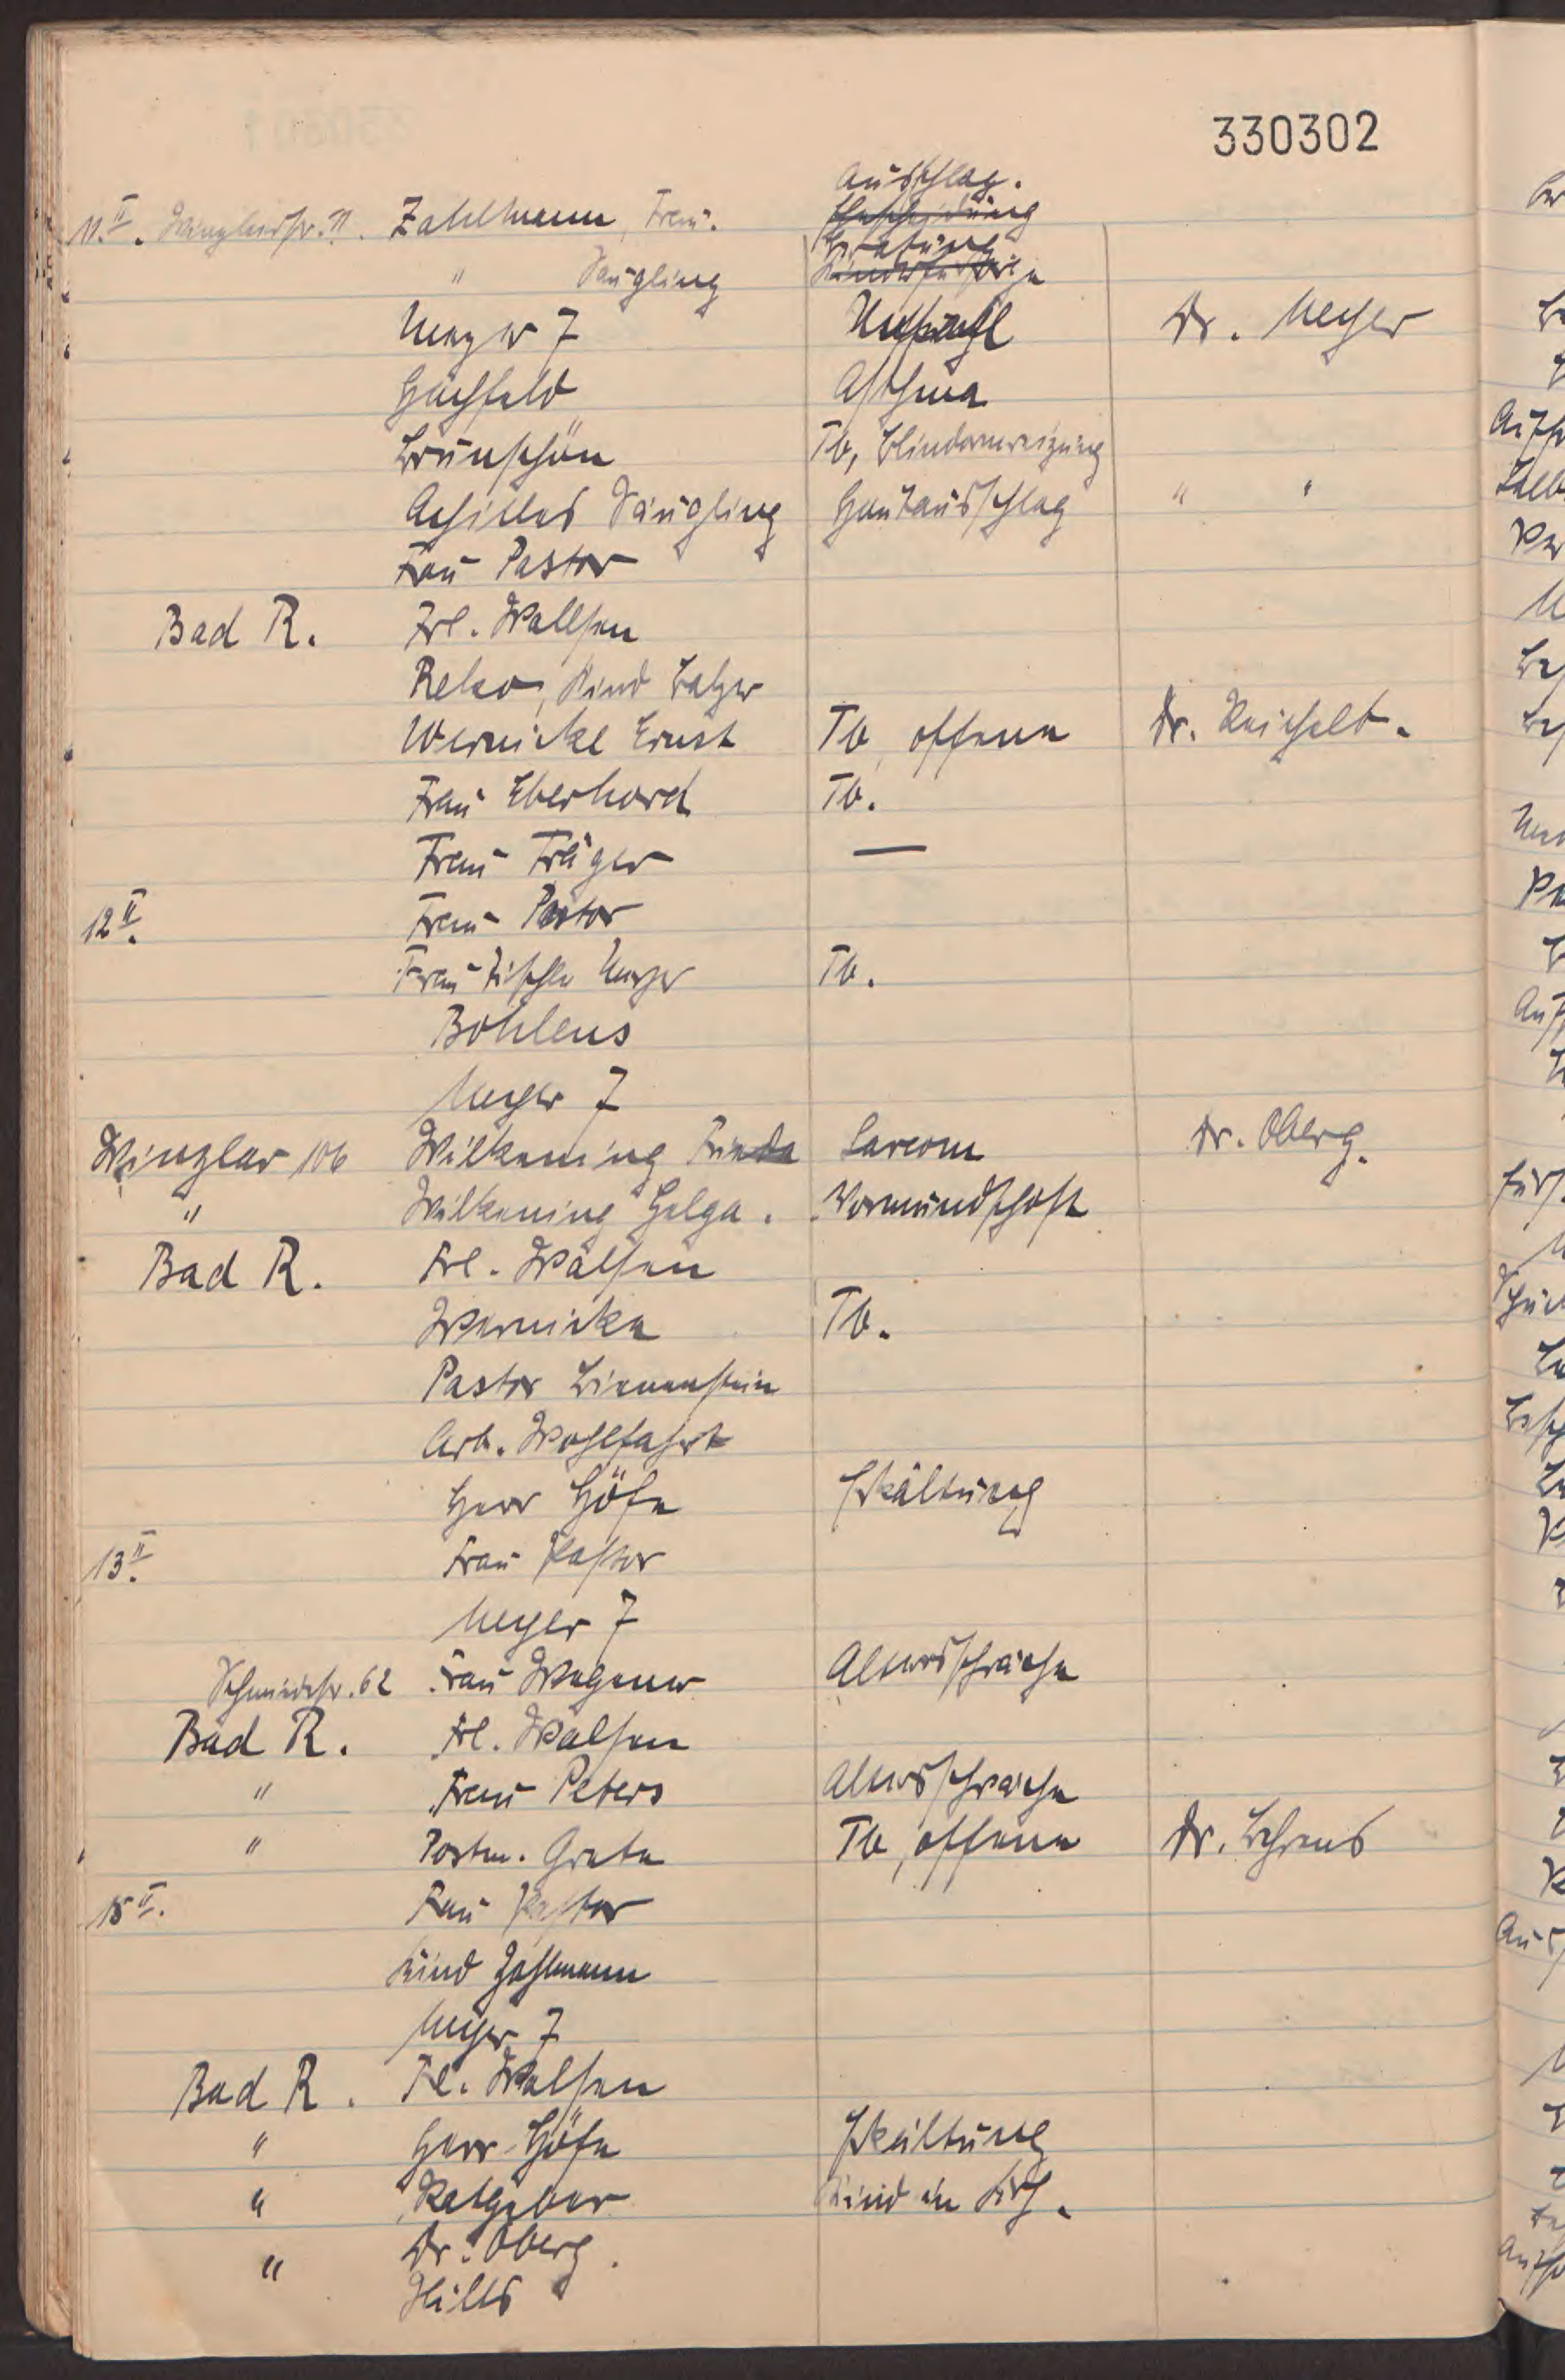 330302
Ausschlag.
11. II. Winzlarstr. 71. Zahlmann, Frau. Ehescheidung
Beratung
" Säugling Kinderfürsorge
Meyer 7 Unfall Dr. Meyer
Huchfeld Asthma
Brunschön Tb, Blinddarmreizung
Achilles Säugling Hautausschlag " "
Frau Pastor
Bad R. Frl. Wallsen
Reko, Kind Balzer
Wernicke Ernst Tb, offene Dr. Reichelt.
Frau Eberhard Tb.
Frau Träger —
12 II. Frau Pastor
Frau Tischler Meyer Tb.
Bohlens
Meyer 7
Winzlar 106 Wilkening Frieda Sarcom Dr. Oberg.
" Wilkening Helga. Vormundschaft
Bad R. Frl. Walsen
Wernicke Tb.
Pastor Linnenstein
Arb. Wohlfahrt
Herr Höfe Erkältung
13. II Frau Pastor
Meyer 7
Schmiedestr. 62 Frau Wegener Altersschwäche
Bad R. Frl. Walsen
" Frau Peters Altersschwäche
" Postm. Grete Tb, offene Dr. Behrens
15 II. Frau Pastor
Kind Zahlmann
Meyer 7
Bad R. Frl. Walsen
" Herr Höfe Erkältung
" Ratgeber Kind in Krh.
" Dr. Oberg.
Hilts